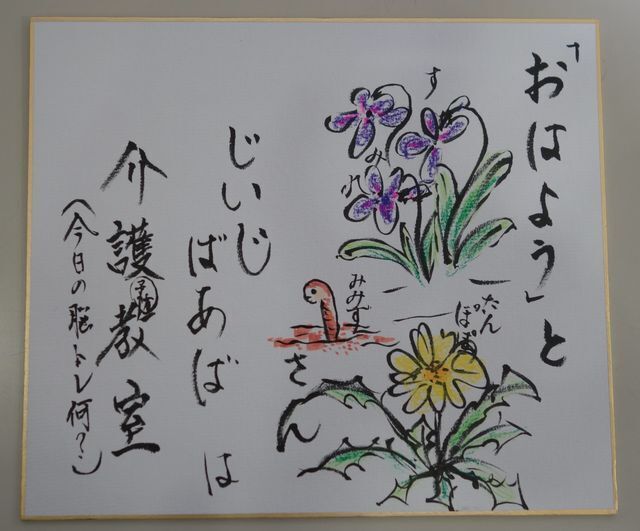 「おはよう」と
すみれ
たん
ぽぽ
みみず
さん
じいじ
ばあば は
介護予防教室
(今日の脳トレ何?)